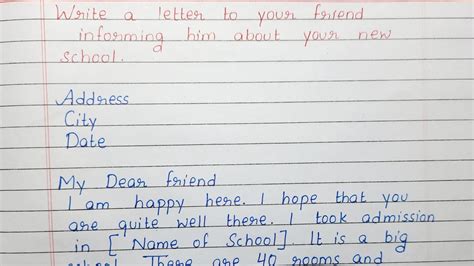 Write a letter to your friend
informing him about your new
school.
Address
City
Date
My Dear friend
I am happy here. I hope that you
are quite well there. I took admission
in [ Name of School]. It is a big
school. There are 40 rooms and